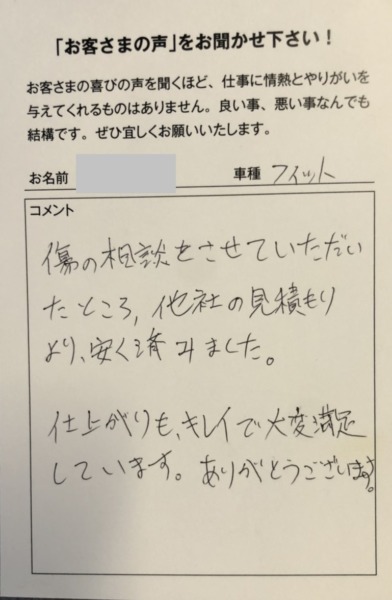 「お客さまの声」をお聞かせ下さい！
お客さまの喜びの声を聞くほど、仕事に情熱とやりがいを
与えてくれるものはありません。良い事、悪い事なんでも
結構です。ぜひ宜しくお願いいたします。
お名前 車種 フィット
コメント
傷の相談をさせていただい
たところ，他社の見積もり
より、安く済みました。
仕上がりも、キレイで大変満足
しています。ありがとうございます。